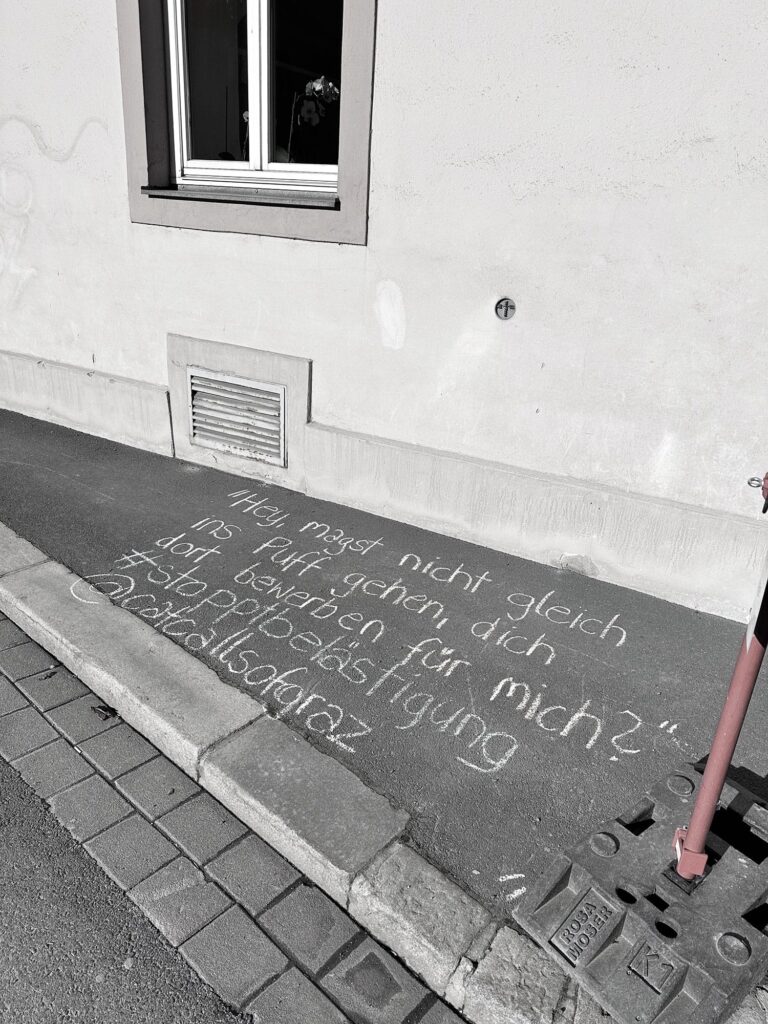 "Hey, magst nicht gleich
ins Puff gehen, dich
dort bewerben für mich?"
#stopptbelästigung
@catcallsofgraz
ROSA
MOSER
K1